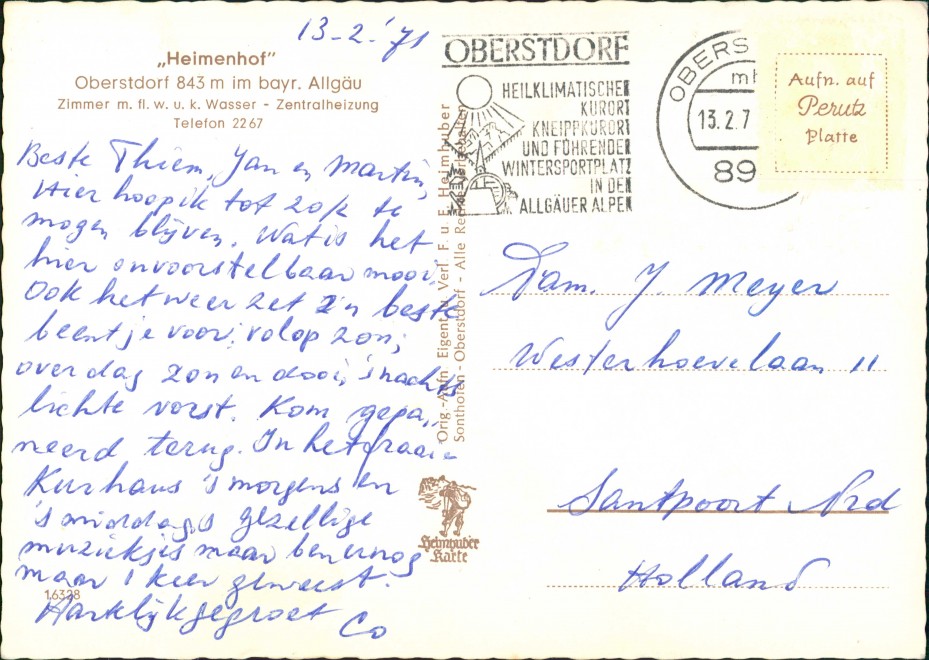 13-2-'71
„Heimenhof"
Oberstdorf 843 m im bayr. Allgäu
Zimmer m. fl. w. u. k. Wasser - Zentralheizung
Telefon 2267
Beste Thiem, Jan en Martin,
Hier hoop ik tot 20/2 te
mogen blijven. Wat is het
hier onvoorstelbaar mooi.
Ook het weer zet z'n beste
beentje voor; volop zon;
overdag zon en dooi, 's nachts
lichte vorst. Kom gepa„
neerd terug. In het fraaie
Kurhaus 's morgens en
's middags gezellige
muziekjes maar ben er nog
maar 1 keer geweest.
Hartelijk gegroet
Co
16328
Orig.-Aufn. Eigent. u. Verl. F. u. E. Heimhuber
Sonthofen - Oberstdorf - Alle Rechte vorbehalten
Heimhuber
Karte
OBERSTDORF
HEILKLIMATISCHER
KURORT
KNEIPPKURORT
UND FÜHRENDER
WINTERSPORTPLATZ
IN DEN
ALLGÄUER ALPEN
OBERS
13.2.7
89
Aufn. auf
Perutz
Platte
Fam. J Meyer
Westerhoevelaan 11
Santpoort Nrd
Holland